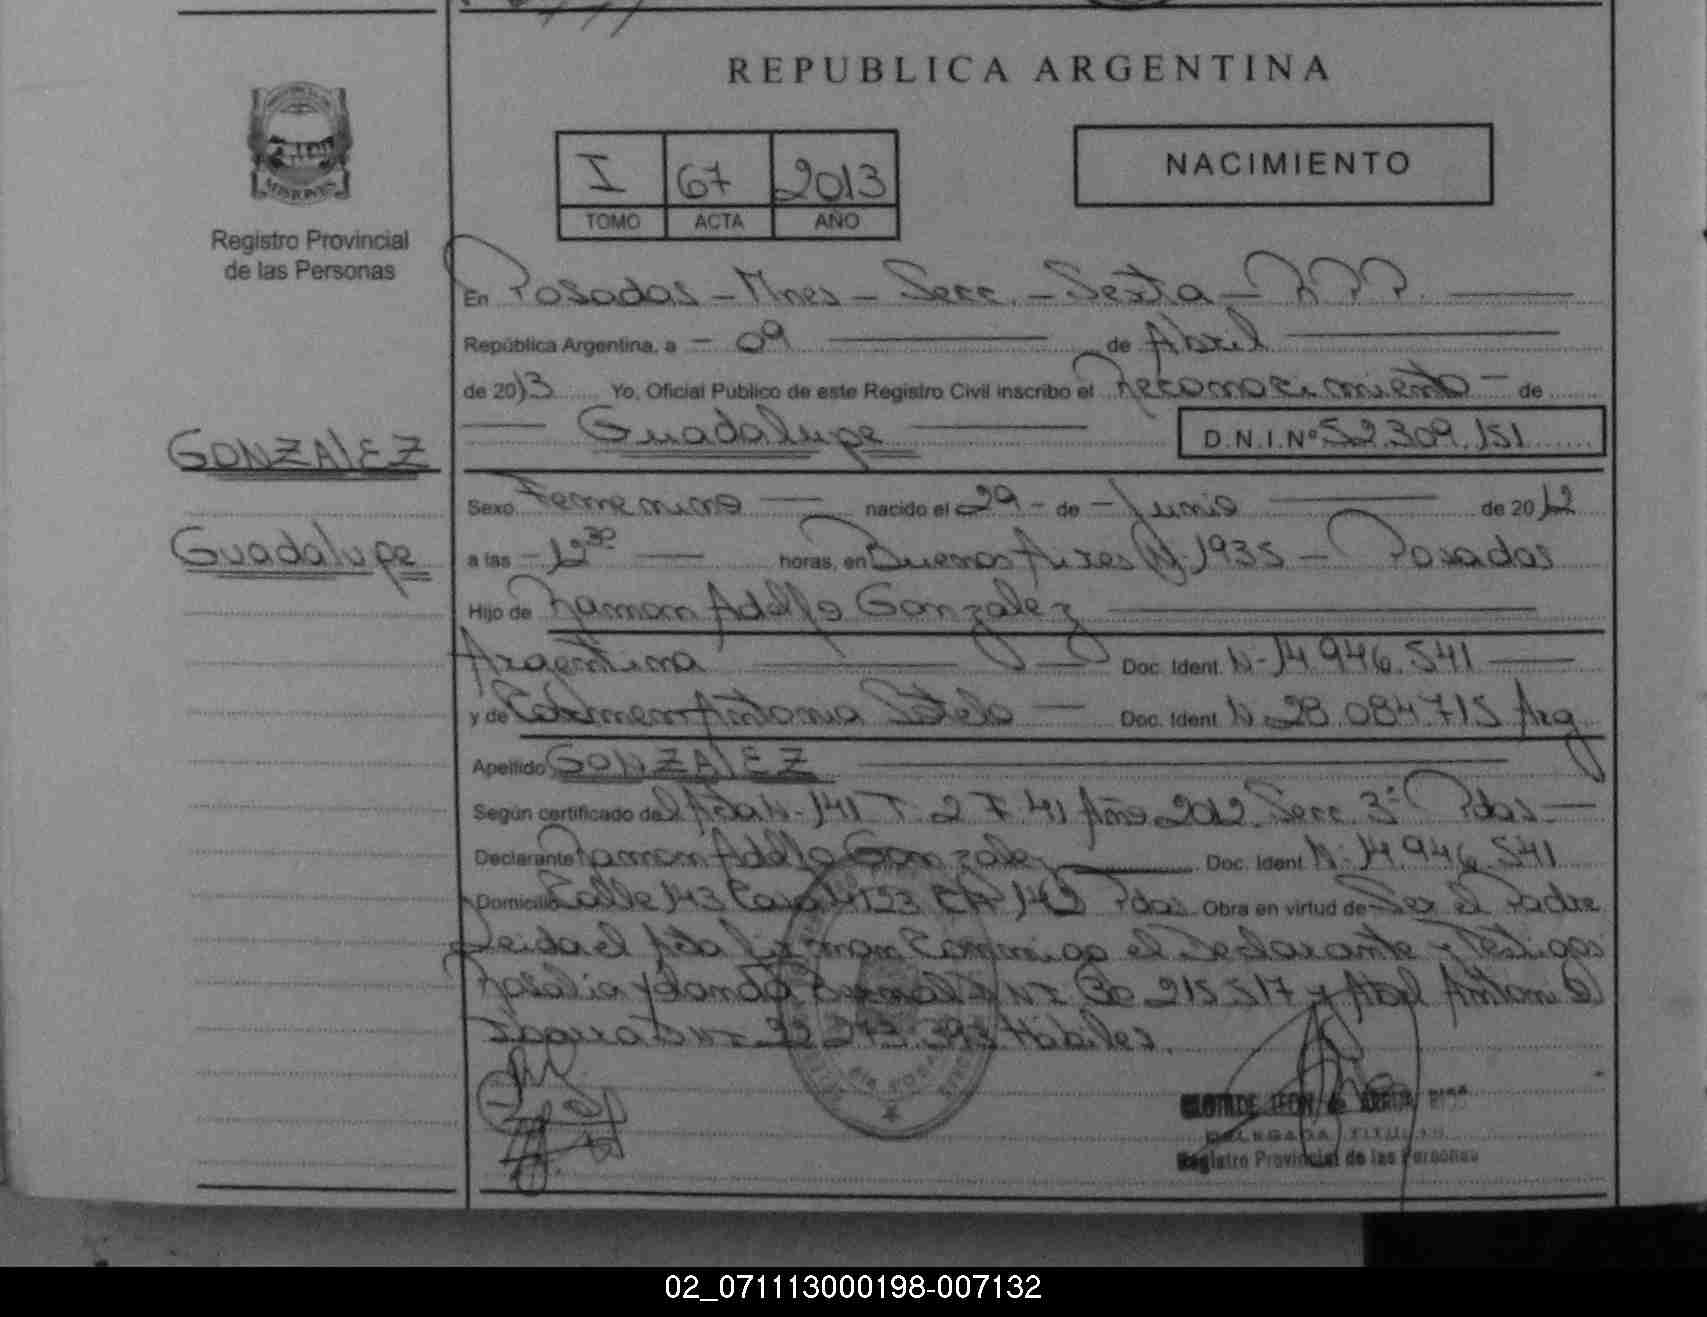 REPUBLICA ARGENTINA
MISIONES
Registro Provincial
de las Personas
I 67 2013
TOMO ACTA AÑO
NACIMIENTO
En Posados - Mnes - Secc. - Sexta - R.P.P.
República Argentina, a - 09 de Abril
de 2013 Yo, Oficial Público de este Registro Civil inscribo el Reconocimiento - de
Guadalupe D.N.I.Nº 52.309.151
GONZALEZ
Guadalupe
Sexo Femenino nacido el 29 - de - Junio de 2012
a las - 12 30 horas, en Buenos Aires N-1935 - Posadas
Hijo de Ramon Adolfo Gonzalez
Argentina Doc. Ident. N-14.946.541
y de Carmen Antonia Sotelo Doc. Ident. N-28.084.715 Arg
Apellido GONZALEZ
Según certificado del Acta N-141 T-2 F-41 Año 2012 Secc. 3ª Pdas
Declarante Ramon Adolfo Gonzalez Doc. Ident. N-14.946.541
Domicilio Calle 143 Casa 4133 CH 142 Pdas Obra en virtud de Ser el Padre
Leida el Acta Firman Conmigo el Declarante y Testigos
Rosalia Yolanda 30.215.517 y Abel Antonio
22.273.393 Habiles.
DELEGADA TITULAR
Registro Provincial de las Personas
02_071113000198-007132